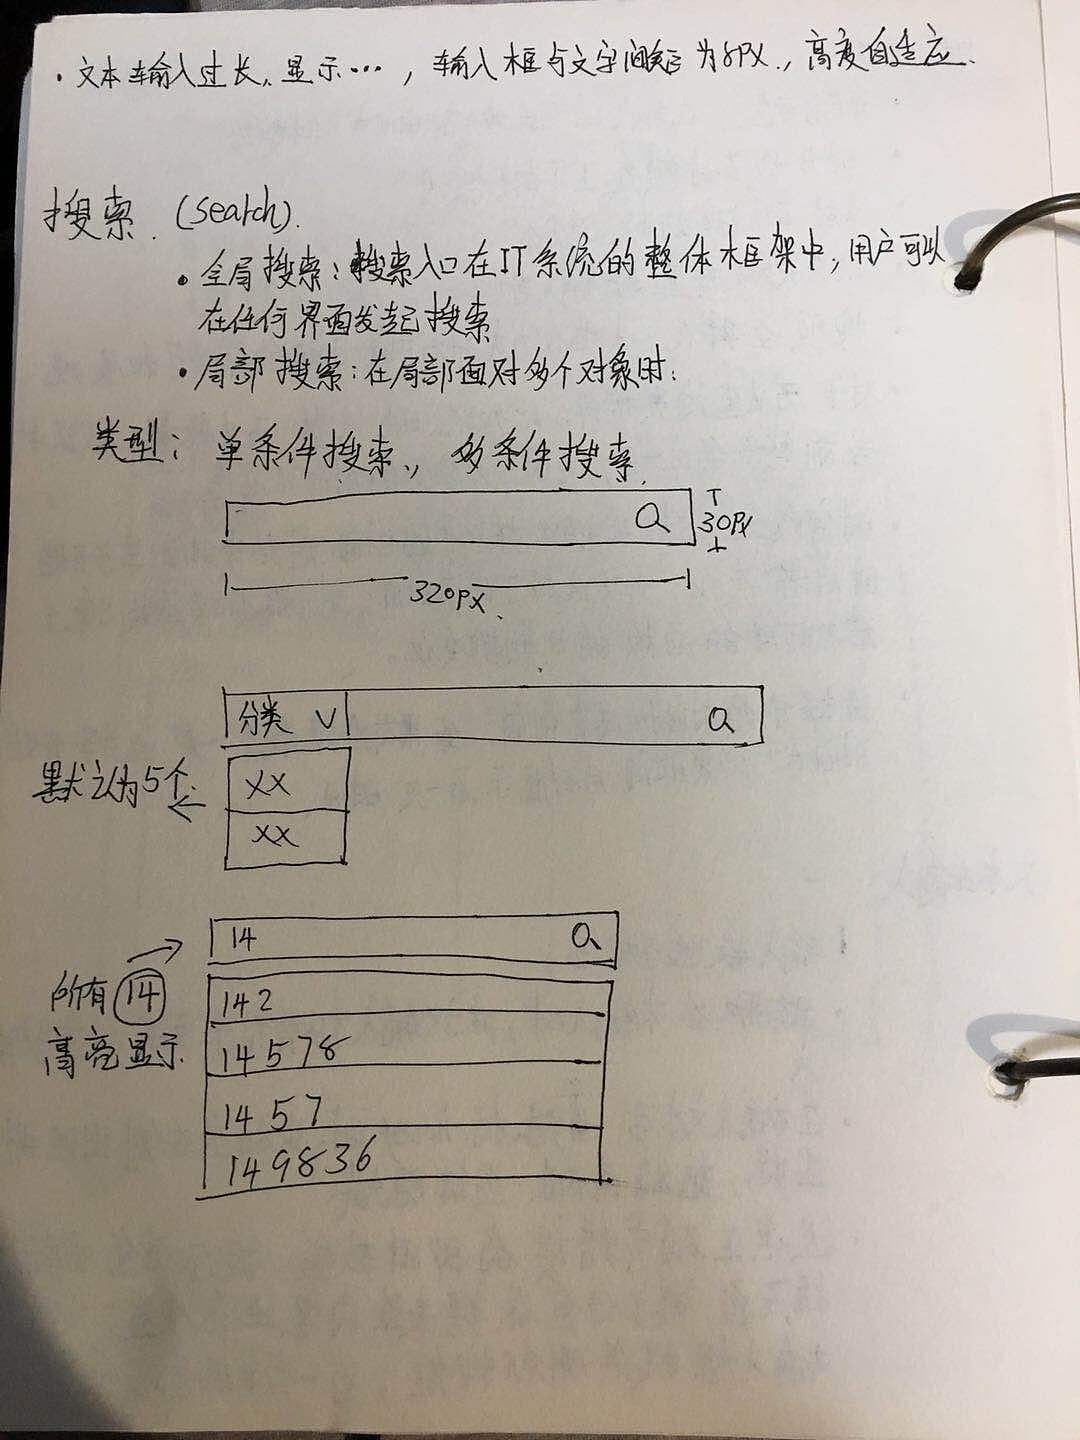 · 文本输入过长, 显示…, 输入框与文字间距为8PX., 高度自适应.
搜索. (search).
· 全局搜索: 搜索入口在IT系统的整体框架中, 用户可以
在任何界面发起搜索
· 局部搜索: 在局部面对多个对象时:
类型: 单条件搜索., 多条件搜索.
30PX
320PX.
分类 V
默认为5个.
XX
XX
14
所有14
高亮显示
142
14578
1457
149836